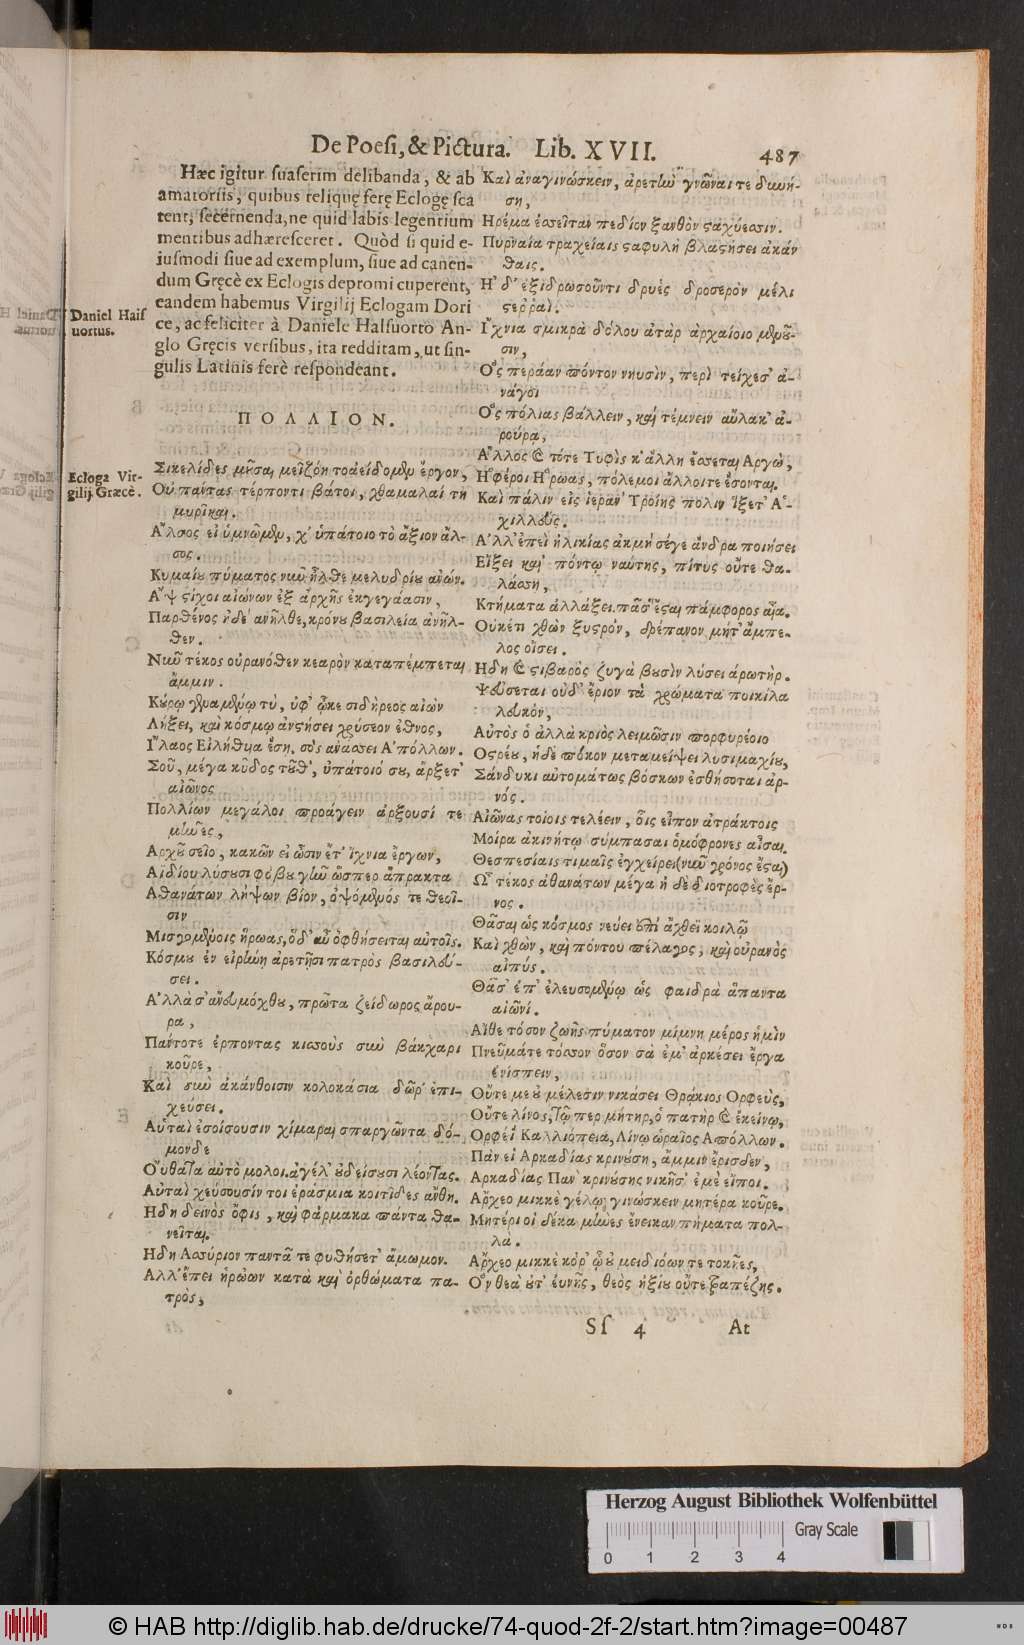 De Poesi, & Pictura. Lib. XVII. 487
Hæc igitur suaserim delibanda, & ab
amatoriis, quibus reliquę ferę Eclogę sca
tent, secernenda, ne quid labis legentium
mentibus adhæresceret. Quòd si quid e-
iusmodi siue ad exemplum, siue ad canen-
dum Gręcè ex Eclogis depromi cuperent,
eandem habemus Virgilij Eclogam Dori
ce, ac feliciter à Daniele Halsuorto An-
glo Gręcis versibus, ita redditam, ut sin-
gulis Latinis ferè respondeant.
Daniel Halſ
uortus.
ΠΟΛΛΙΟΝ.
Ecloga Vir-
gilij Græcè.
Σικελίδες μῆσαι μείζόη τοαείδομϑμ ἔργον,
Οὐ πάντας τέρποντι βάτοι, χθαμαλαί τη
μυρῖκαι.
Ἄλσος εἰ ὑμνῶμϑμ, χ' ὑπάτοιο τὸ ἄξιον ἄλ-
σος.
Κυμαίου πύματος νιῦ ἦλθε μελυδρίου αἰών.
Ἂψ ςίχοι αἰώνων ἐξ ἀρχῆς ἐκγεγάασιν,
Παρθένος ἠδὲ ἀνῆλθε, κρόνου βασιλεία ἀνῆλ-
θεν.
Νιῦ τέκος οὐρανόθεν κεαρὸν καταπέμπεται
ἄμμιν.
Κούρῳ γιναμένῳ τὺ, ὑφ' ᾧκε σιδήρεος αἰών
Λήξει, καὶ κόσμῳ ἀνςήσει χρύσεον ἔθνος,
Ἵλαος Εἰλήθυα ἔση. σὸς ἀνάσσει Ἀπόλλων.
Σοῦ, μέγα κῦδος τοῦθ', ὑπάτοιό σου, ἄρξετ'
αἰῶνος
Πολλίων μεγάλοι προάγειν ἀρξουσί τε
μῆνες,
Ἀρχοῦ σεῖο, κακῶν εἰ ὦσιν ἔτ' ἴχνια ἔργων,
Ἀϊδίου λύσουσι φόβου γῆν ὥσπερ ἄπρακτα
Ἀθανάτων λήψων βίον, ὀψόμενός τε θεοῖ-
σιν
Μισγομένοις ἥρωας, ὅδ' αὖ ὀφθήσεται αὐτοῖς.
Κόσμου ἐν εἰρήνῃ ἀρετῆσι πατρὸς βασιλεύ-
σει.
Ἀλλὰ σ' ἄνευ μόχθου, πρῶτα ζείδωρος ἄρου-
ρα,
Πάντοτε ἕρποντας κισσοὺς σιὺ βάκχαρι
κοῦρε,
Καὶ σιὺ ἀκάνθοισιν κολοκάσια δῶρ' ἐπι-
χεύσει.
Αὗται ἐσοίσουσιν χίμαραι σπαργῶντα δό-
μονδε
Οὔθατα αὐτὸ μολοι. ἀγέλ' οὐδείσουσι λέοντας.
Αὐταὶ χεύσουσίν τοι ἐράσμια κοιτίδες ἄνθη.
Ἤδη δεινὸς ὄφις, καὶ φάρμακα πάντα θα-
νεῖται.
Ἤδη Ἀσσύριον παντᾶ τε φυθήσετ' ἄμωμον.
Ἀλλ' ἔπει ἡρώων κατὰ καὶ ὀρθώματα πα-
τρὸς,
Καὶ ἀναγινώσκειν, ἀρετὴν γνῶναι τε δυνή-
ση,
Ἠρέμα ἔσσεῖται πεδίον ξανθὸν ςαχύεσσιν.
Πυρναία τραχείαις ςαφυλὴ βλαςήσει ἀκάν
θαις.
Ἠ δ' ἐξιδρωσοῦντι δρυὲς δροσερὸν μέλι
ςερραὶ.
Ἴχνια σμικρὰ δόλου ἀτὰρ ἀρχαίοιο μενοῦ-
σιν,
Ὃς περάαν πόντον νηυσὶν, περὶ τείχεσ' ἀ-
νάγοι
Ὃς πόλιας βάλλειν, καὶ τέμνειν αὔλακ' ἀ-
ρούρα,
Ἄλλος & τότε Τυφὶς κ' ἄλλη ἔσσεται Ἀργὼ,
Ἣ φέροι Ἥρωας, πόλεμοι ἄλλοιτε ἔσονται.
Καὶ πάλιν εἰς ἱερὰν Τροίης πόλιν ἵξετ' Ἀ-
χιλλεύς.
Ἀλλ' ἐπεὶ ἡλικίας ἀκμή σέγε ἄνδρα ποιήσει
Εἴξει καὶ πόντῳ ναύτης, πίτυς οὔτε θα-
λάσση,
Κτήματα ἀλλάξει. πᾶσ' ἔςαι πάμφορος αἶα.
Οὐκέτι χθὼν ξυςρὸν, δρέπανον μήτ' ἄμπε-
λος οἴσει.
Ἤδη & ςιβαρὸς ζυγὰ βουσὶν λύσει ἀρωτήρ.
Ψεύσεται οὐδ' ἔριον τὰ χρώματα ποικίλα
λευκὸν,
Αὐτὸς ὁ ἀλλὰ κριὸς λειμῶσιν πορφυρέοιο
Ὀςρέου, ἠδὲ πόκον μεταμείψει λυσιμαχίου,
Σάνδυκι αὐτομάτως βόσκων ἐσθήσσται ἀρ-
νός.
Αἰῶνας τοίοις τελέειν, οἷς εἶπον ἀτράκτοις
Μοίρα ἀκινήτῳ σύμπασαι ὁμόφρονες αἶσαι.
Θεσπεσίαις τιμαῖς ἐγχείρει (νιῦ χρόνος ἔςαι)
Ὦ τέκος ἀθανάτων μέγα ἠ δὲ διοτροφὲς ἔρ-
νος.
Θᾶσαι ὡς κόσμος νεύει ἐπὶ ἄχθεϊ κοιλῷ
Καὶ χθὼν, καὶ πόντου πέλαγος, καὶ οὐρανὸς
αἰπύς.
Θᾶσ' ἐπ' ἐλευσομένῳ ὡς φαιδρὰ ἅπαντα
αἰῶνί.
Αἴθε τόσον ζωῆς πύματον μίμνη μέρος ἡμὶν
Πνεῦμάτε τόσσον ὅσον σὰ ἐμ' ἀρκέσει ἔργα
ἐνίσπειν,
Οὔτε μεῦ μέλεσιν νικάσει Θρᾴκιος Ὀρφεὺς,
Οὔτε λίνος, Τῷ περ μήτηρ, ὁ πατὴρ & ἐκείνῳ,
Ὀρφέϊ Καλλιόπεια, Λίνῳ ὡραῖος Ἀπόλλων.
Πὰν εἰ Ἀρκαδίας κρινούση, ἄμμιν ἔρισδεν,
Ἀρκαδίας Πὰν κρινούσης νικῆσ' ἐμὲ εἴποι.
Ἄρχεο μικκὲ γέλῳ γινώσκειν μητέρα κοῦρε.
Μητέρι οἱ δέκα μῆνες ἔνεικαν πήματα πολ-
λά.
Ἄρχεο μικκὲ κόρ' ᾧ οὐ μειδιόων τε τοκῆες,
Ὃν θεὰ οὔτ' εὐνῆς, θεὸς ἠξίου οὔτε τραπέζης.
Sſ 4 At
Herzog August Bibliothek Wolfenbüttel
Gray Scale
0 1 2 3 4
© HAB http://diglib.hab.de/drucke/74-quod-2f-2/start.htm?image=00487